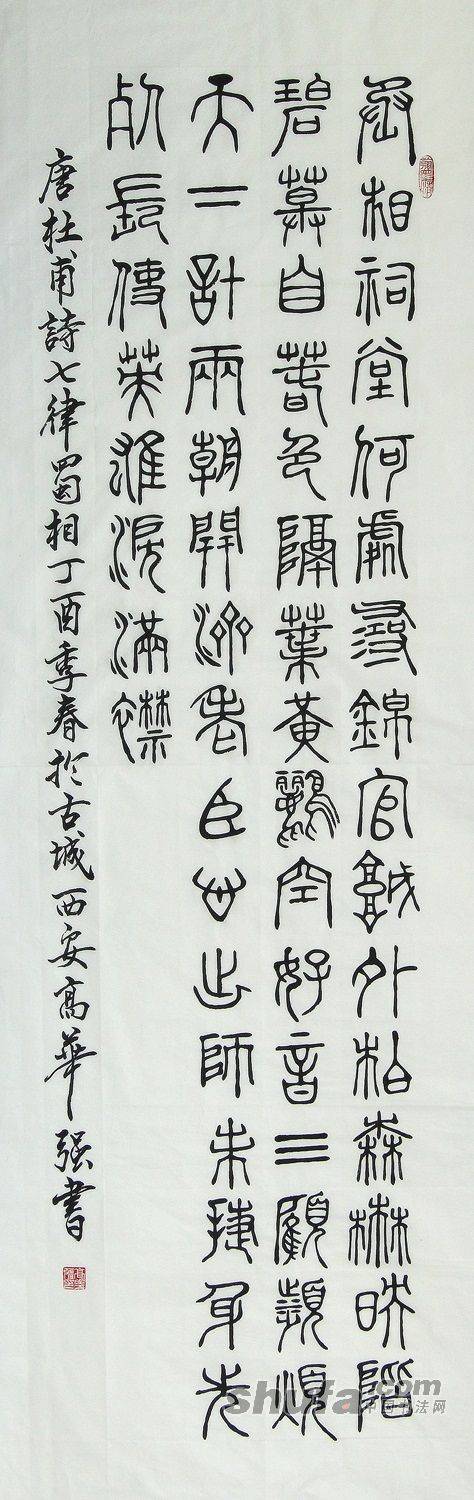 丞相祠堂何處尋錦官城外柏森森映階
碧草自春色隔葉黃鸝空好音三顧頻煩
天下計兩朝開濟老臣心出師未捷身先
死長使英雄淚滿襟
唐杜甫詩七律蜀相丁酉季春於古城西安高華强書
shufa.com
中国书法网